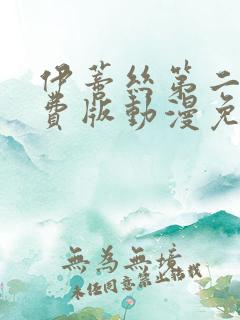 伊蒂丝第二
费版動漫免
無為無境
未经同意禁止转载